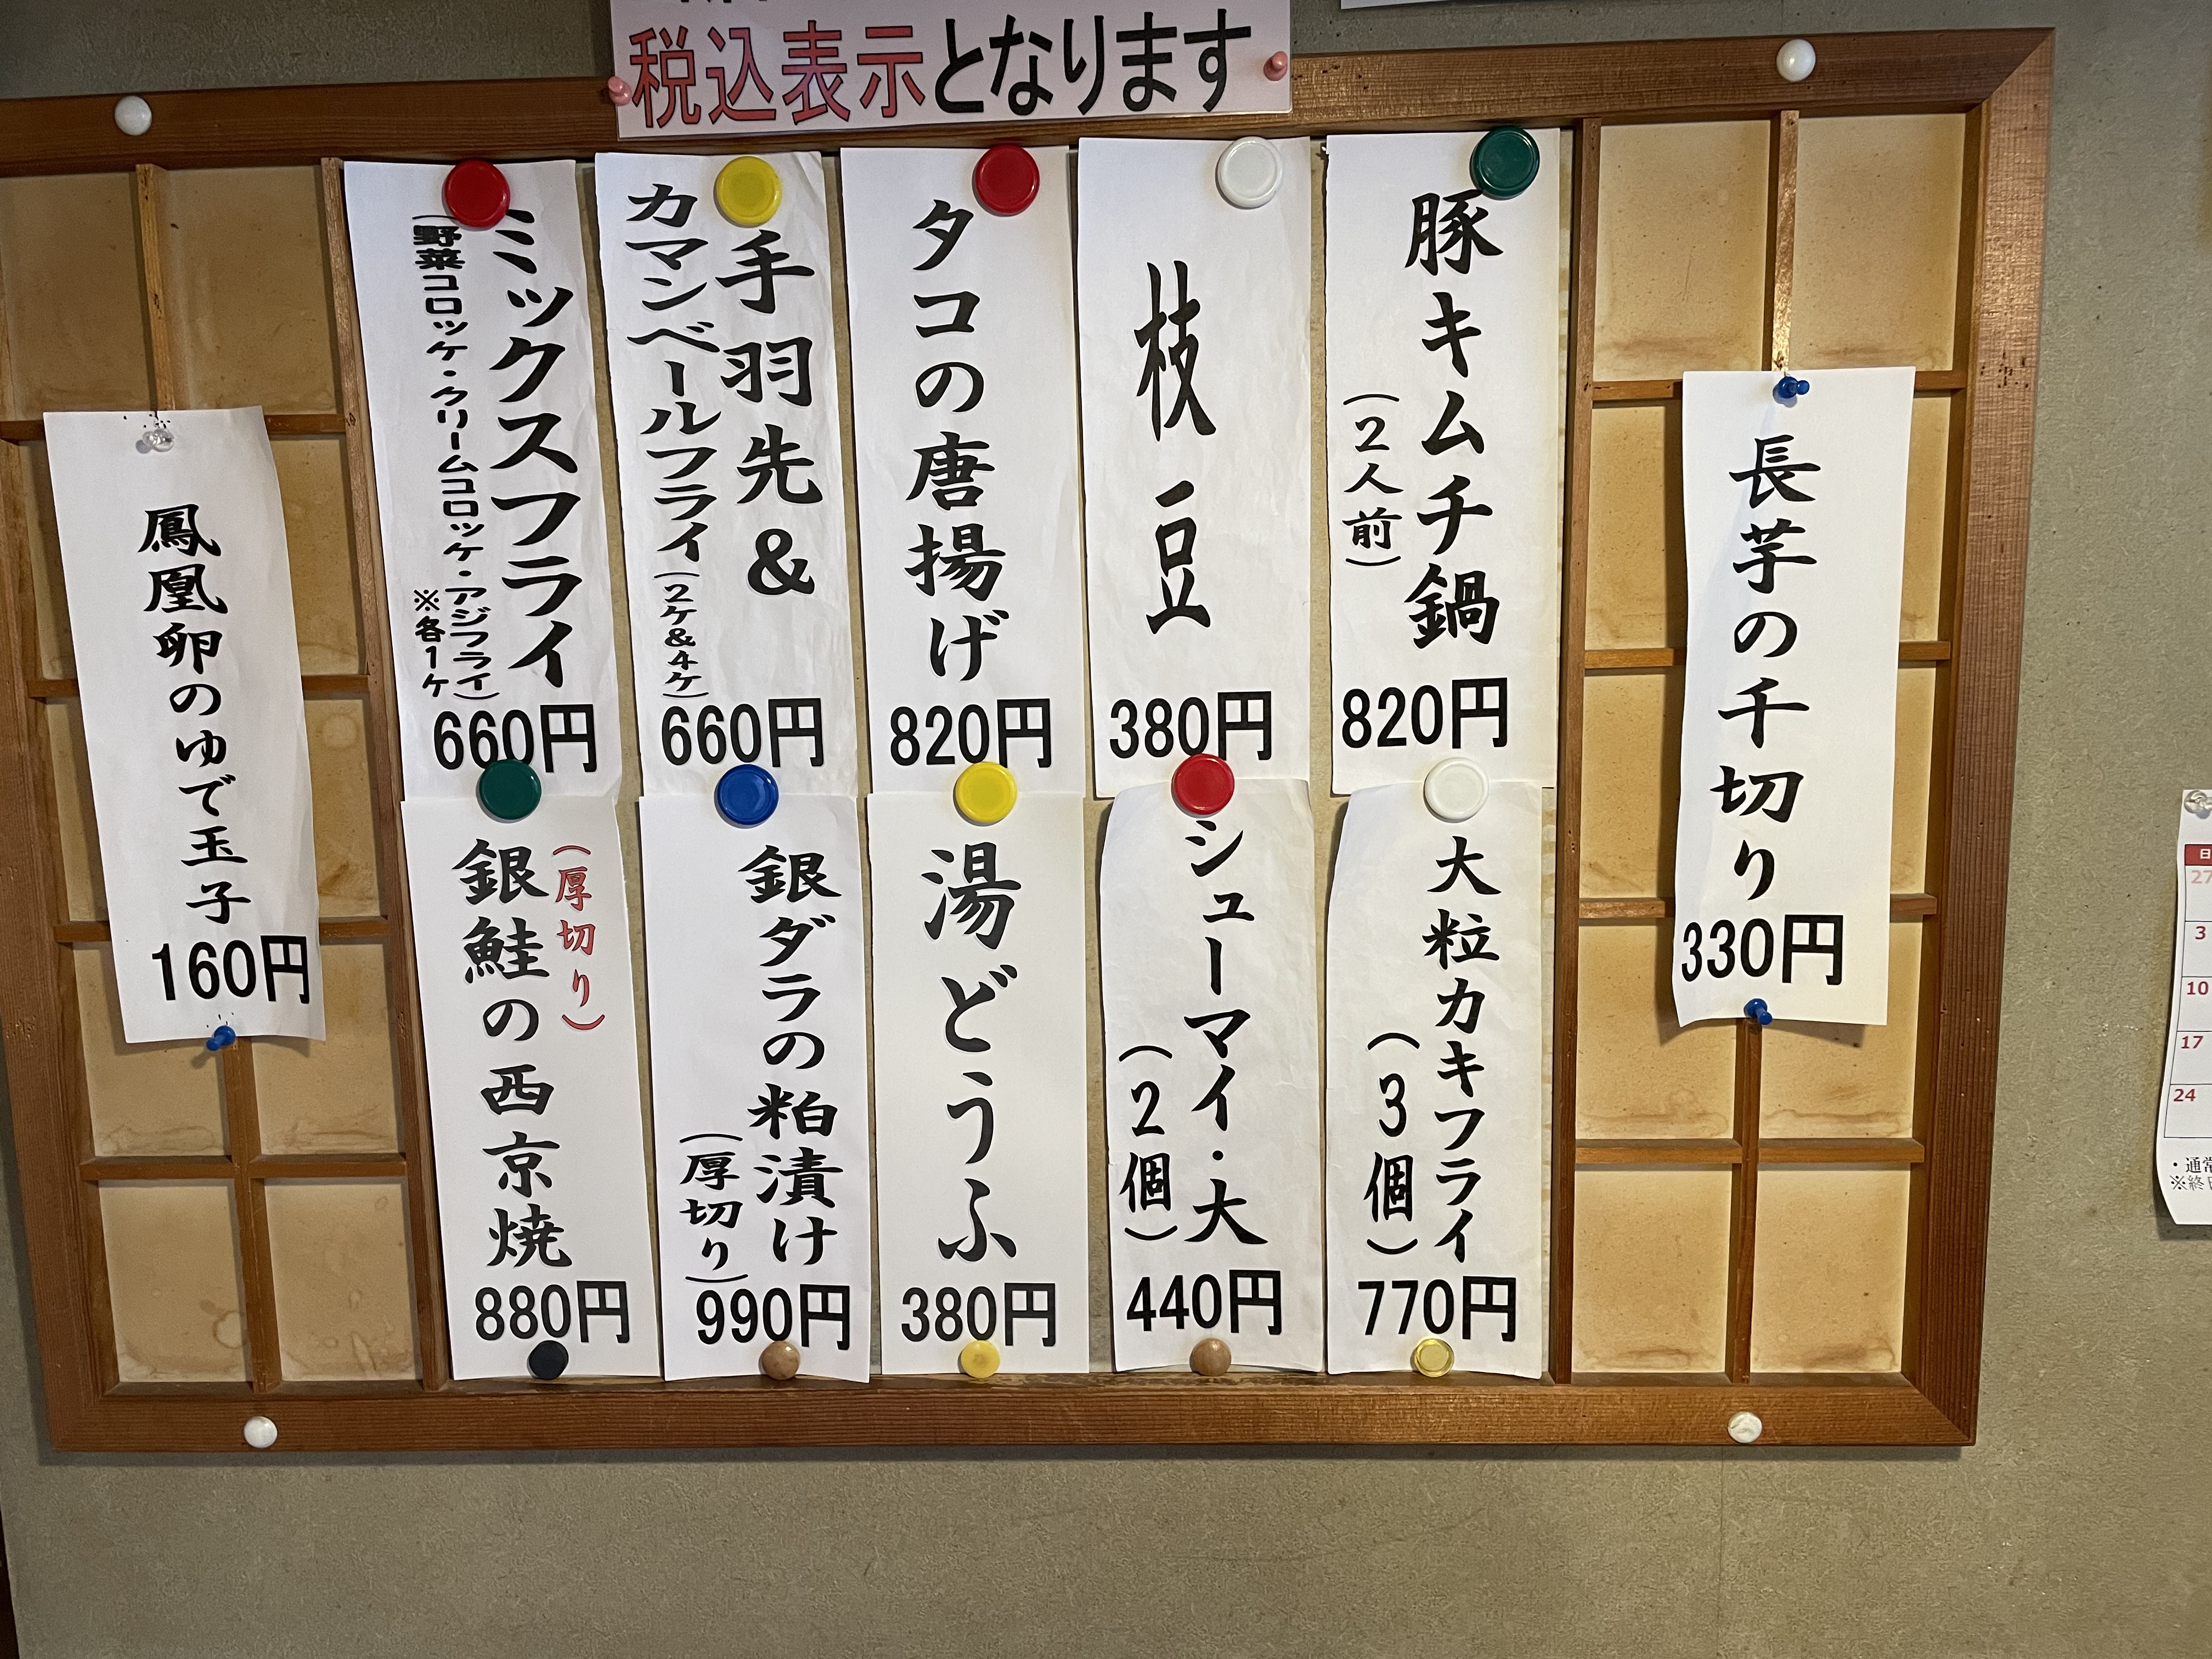 税込表示となります
長芋の千切り
330円
豚キムチ鍋
(2人前)
820円
枝豆
380円
タコの唐揚げ
820円
手羽先&
カマンベールフライ(2ケ&4ケ)
660円
ミックスフライ
(野菜コロッケ・クリームコロッケ・アジフライ)
※各1ケ
660円
大粒カキフライ
(3個)
770円
シューマイ・大
(2個)
440円
湯どうふ
380円
銀ダラの粕漬け
(厚切り)
990円
(厚切り)
銀鮭の西京焼
880円
鳳凰卵のゆで玉子
160円
日
27
3
10
17
24
・通常
※終日